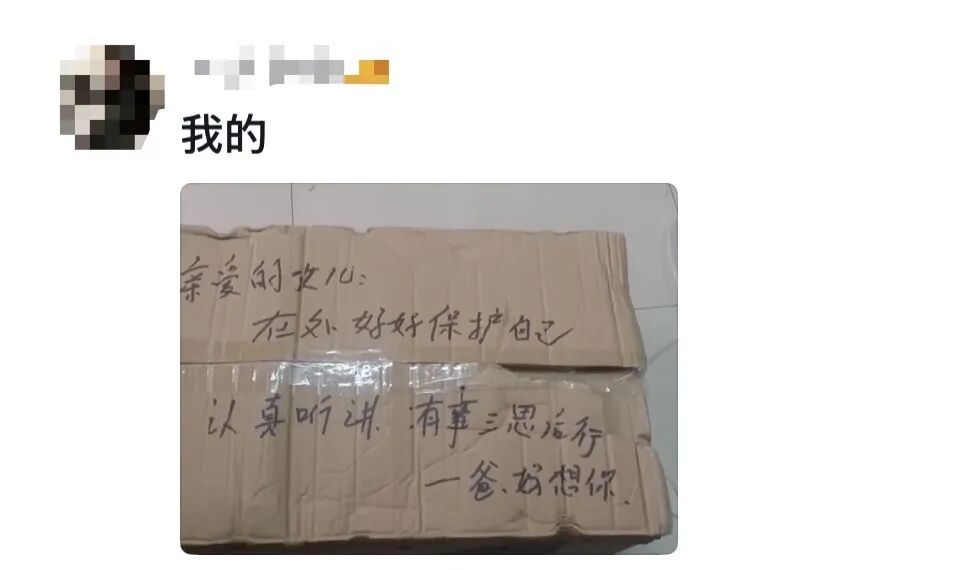 我的
亲爱的女儿:
在外好好保护自己
认真听讲 有事三思后行
一爸.好想你.